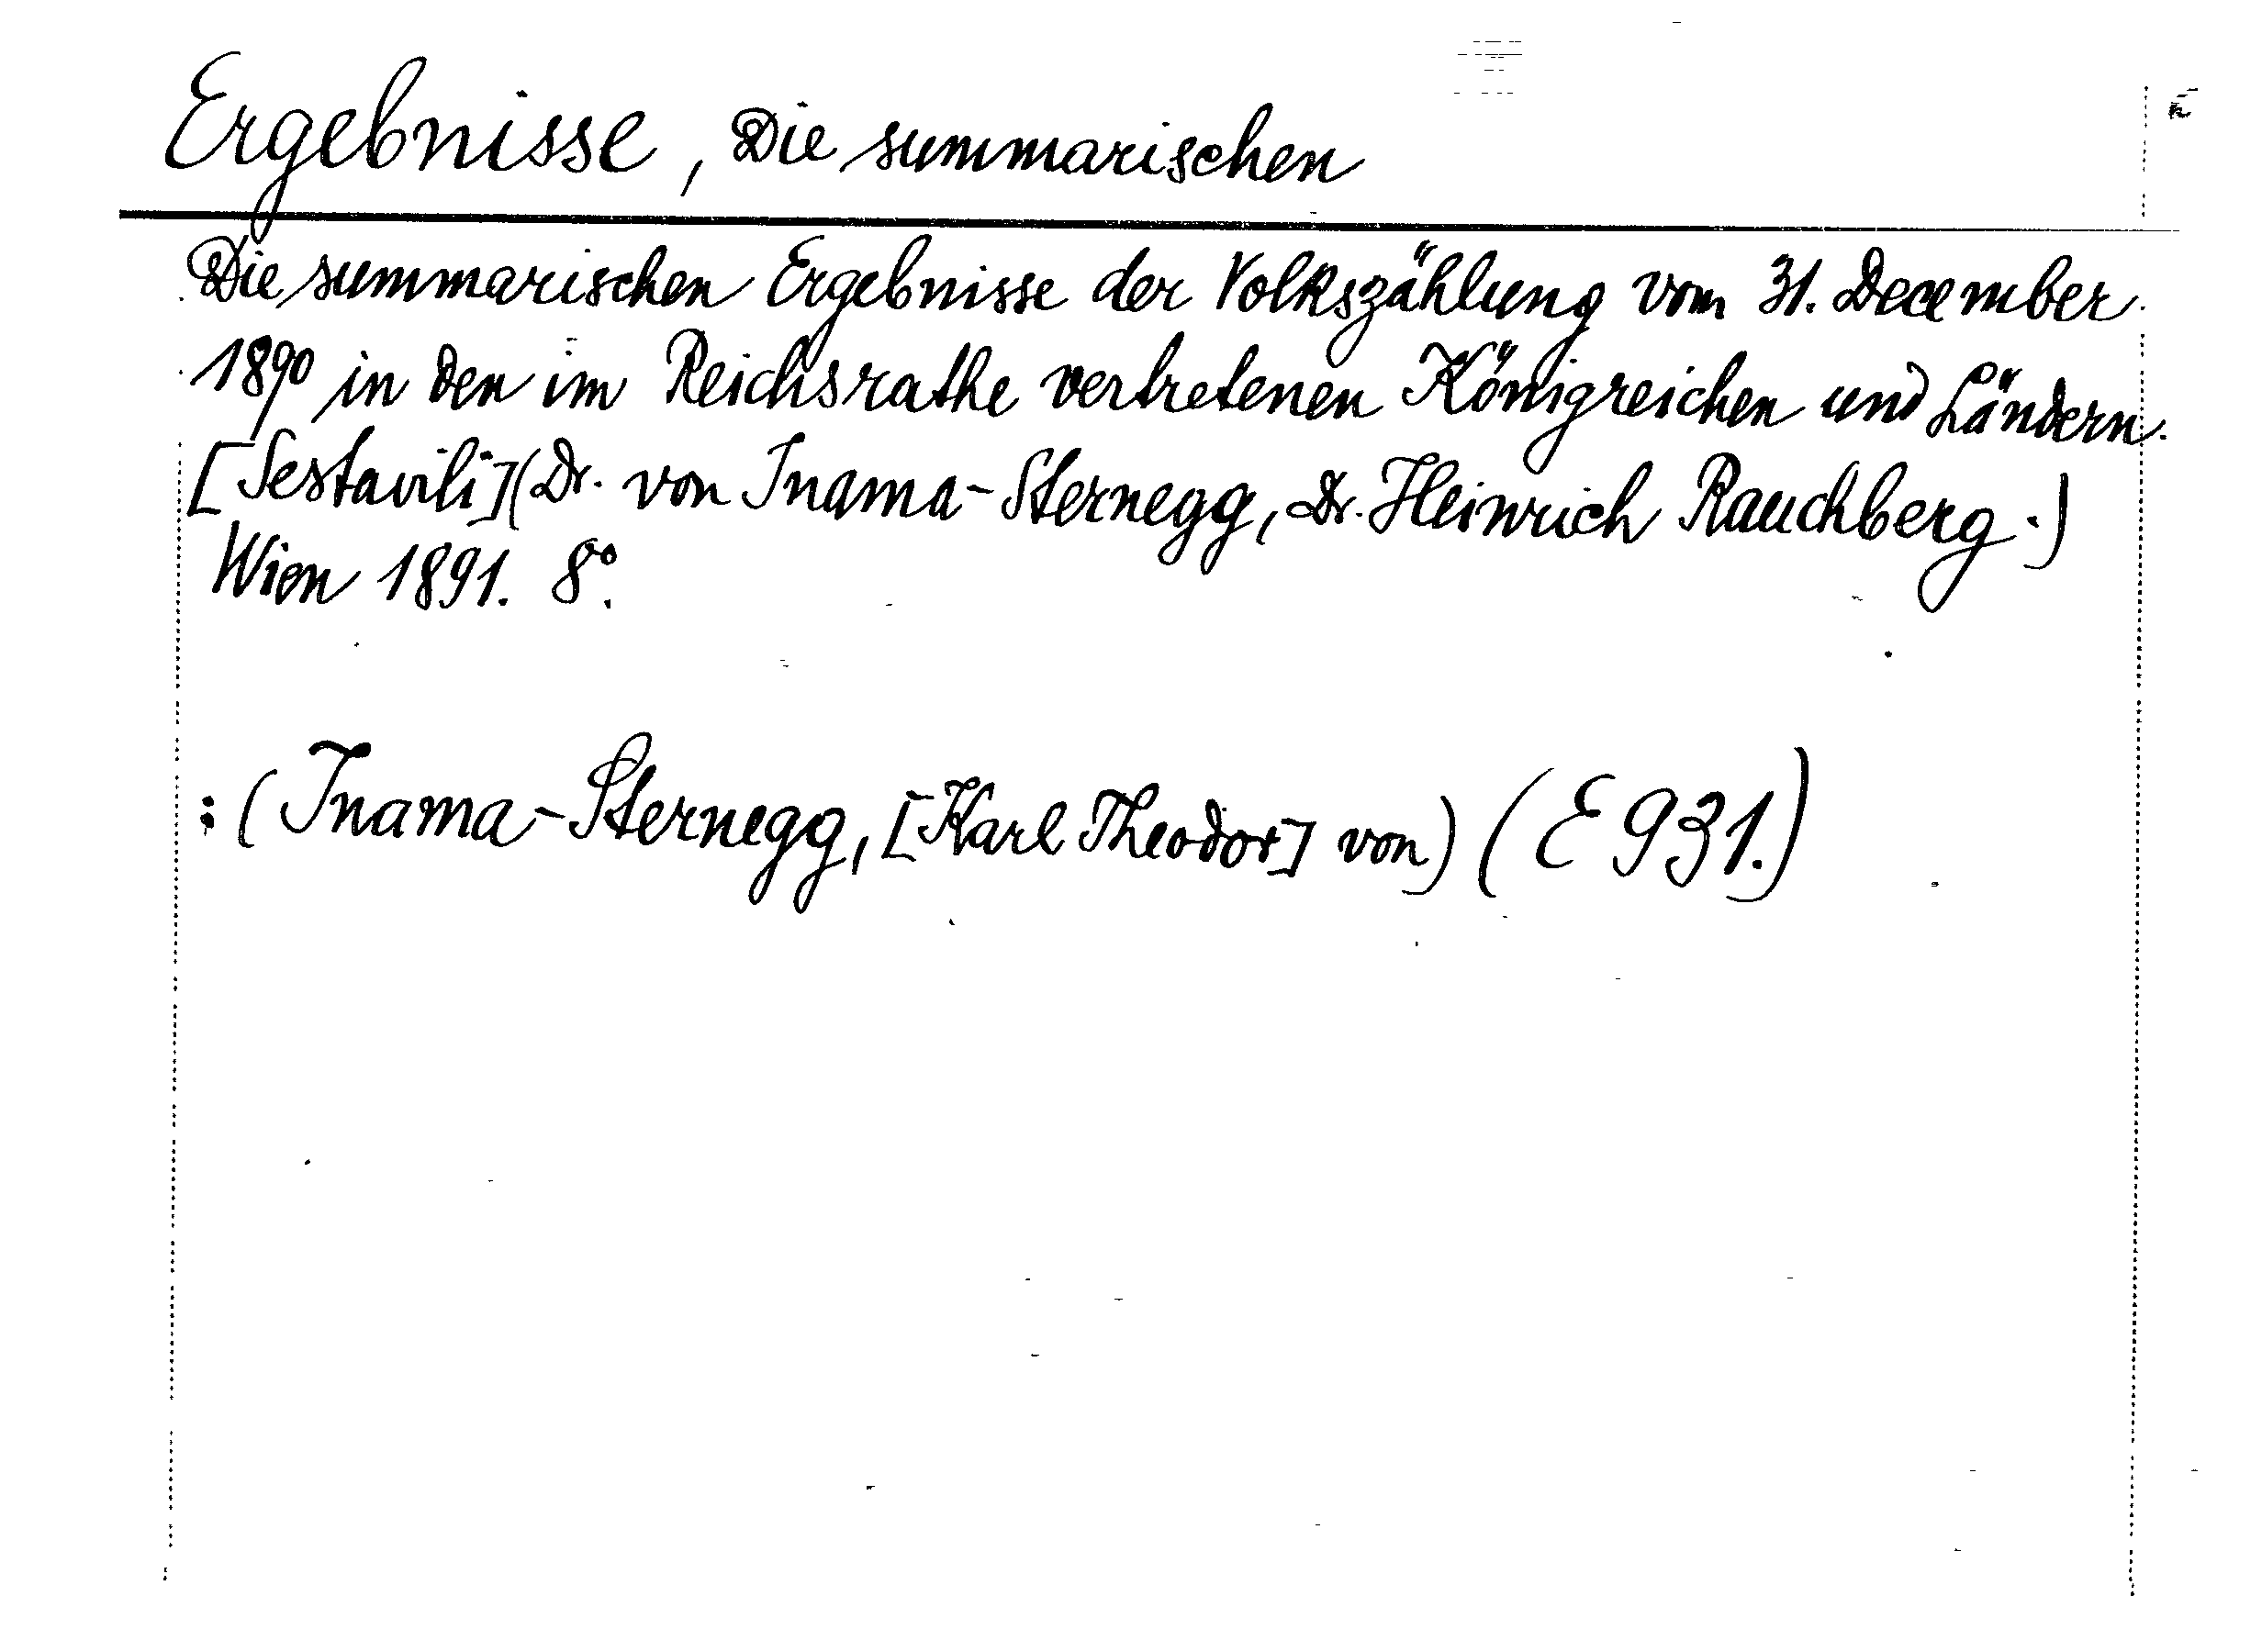 Ergebnisse, Die summarischen
Die summarischen Ergebnisse der Volkszählung vom 31. December
1890 in den im Reichsrathe vertretenen Königreichen und Ländern.
[Sestavili] (Dr. von Inama-Sternegg, Dr. Heinrich Rauchberg.)
Wien 1891. 8°.
: (Inama-Sternegg, [Karl Theodor] von) (E 931.)